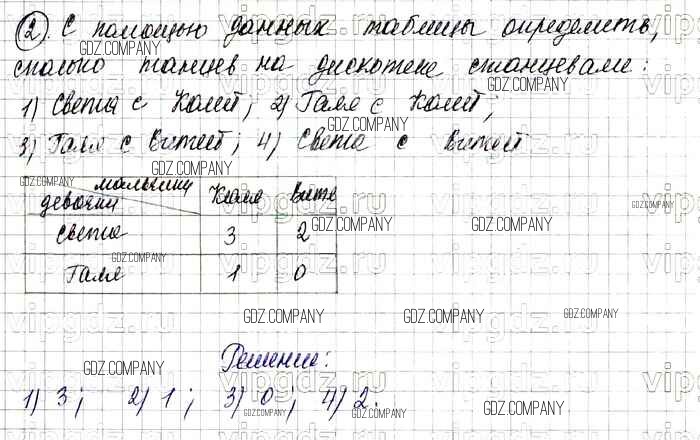 ② С помощью данных таблицы определить,
сколько танцев на дискотеке станцевали:
1) Света с Колей; 2) Галя с Колей;
3) Галя с Витей; 4) Света с Витей
мальчики Коля Витя
девочки
Света 3 2
Галя 1 0
Решение:
1) 3; 2) 1; 3) 0; 4) 2.
GDZ.COMPANY
vipgdz.ru